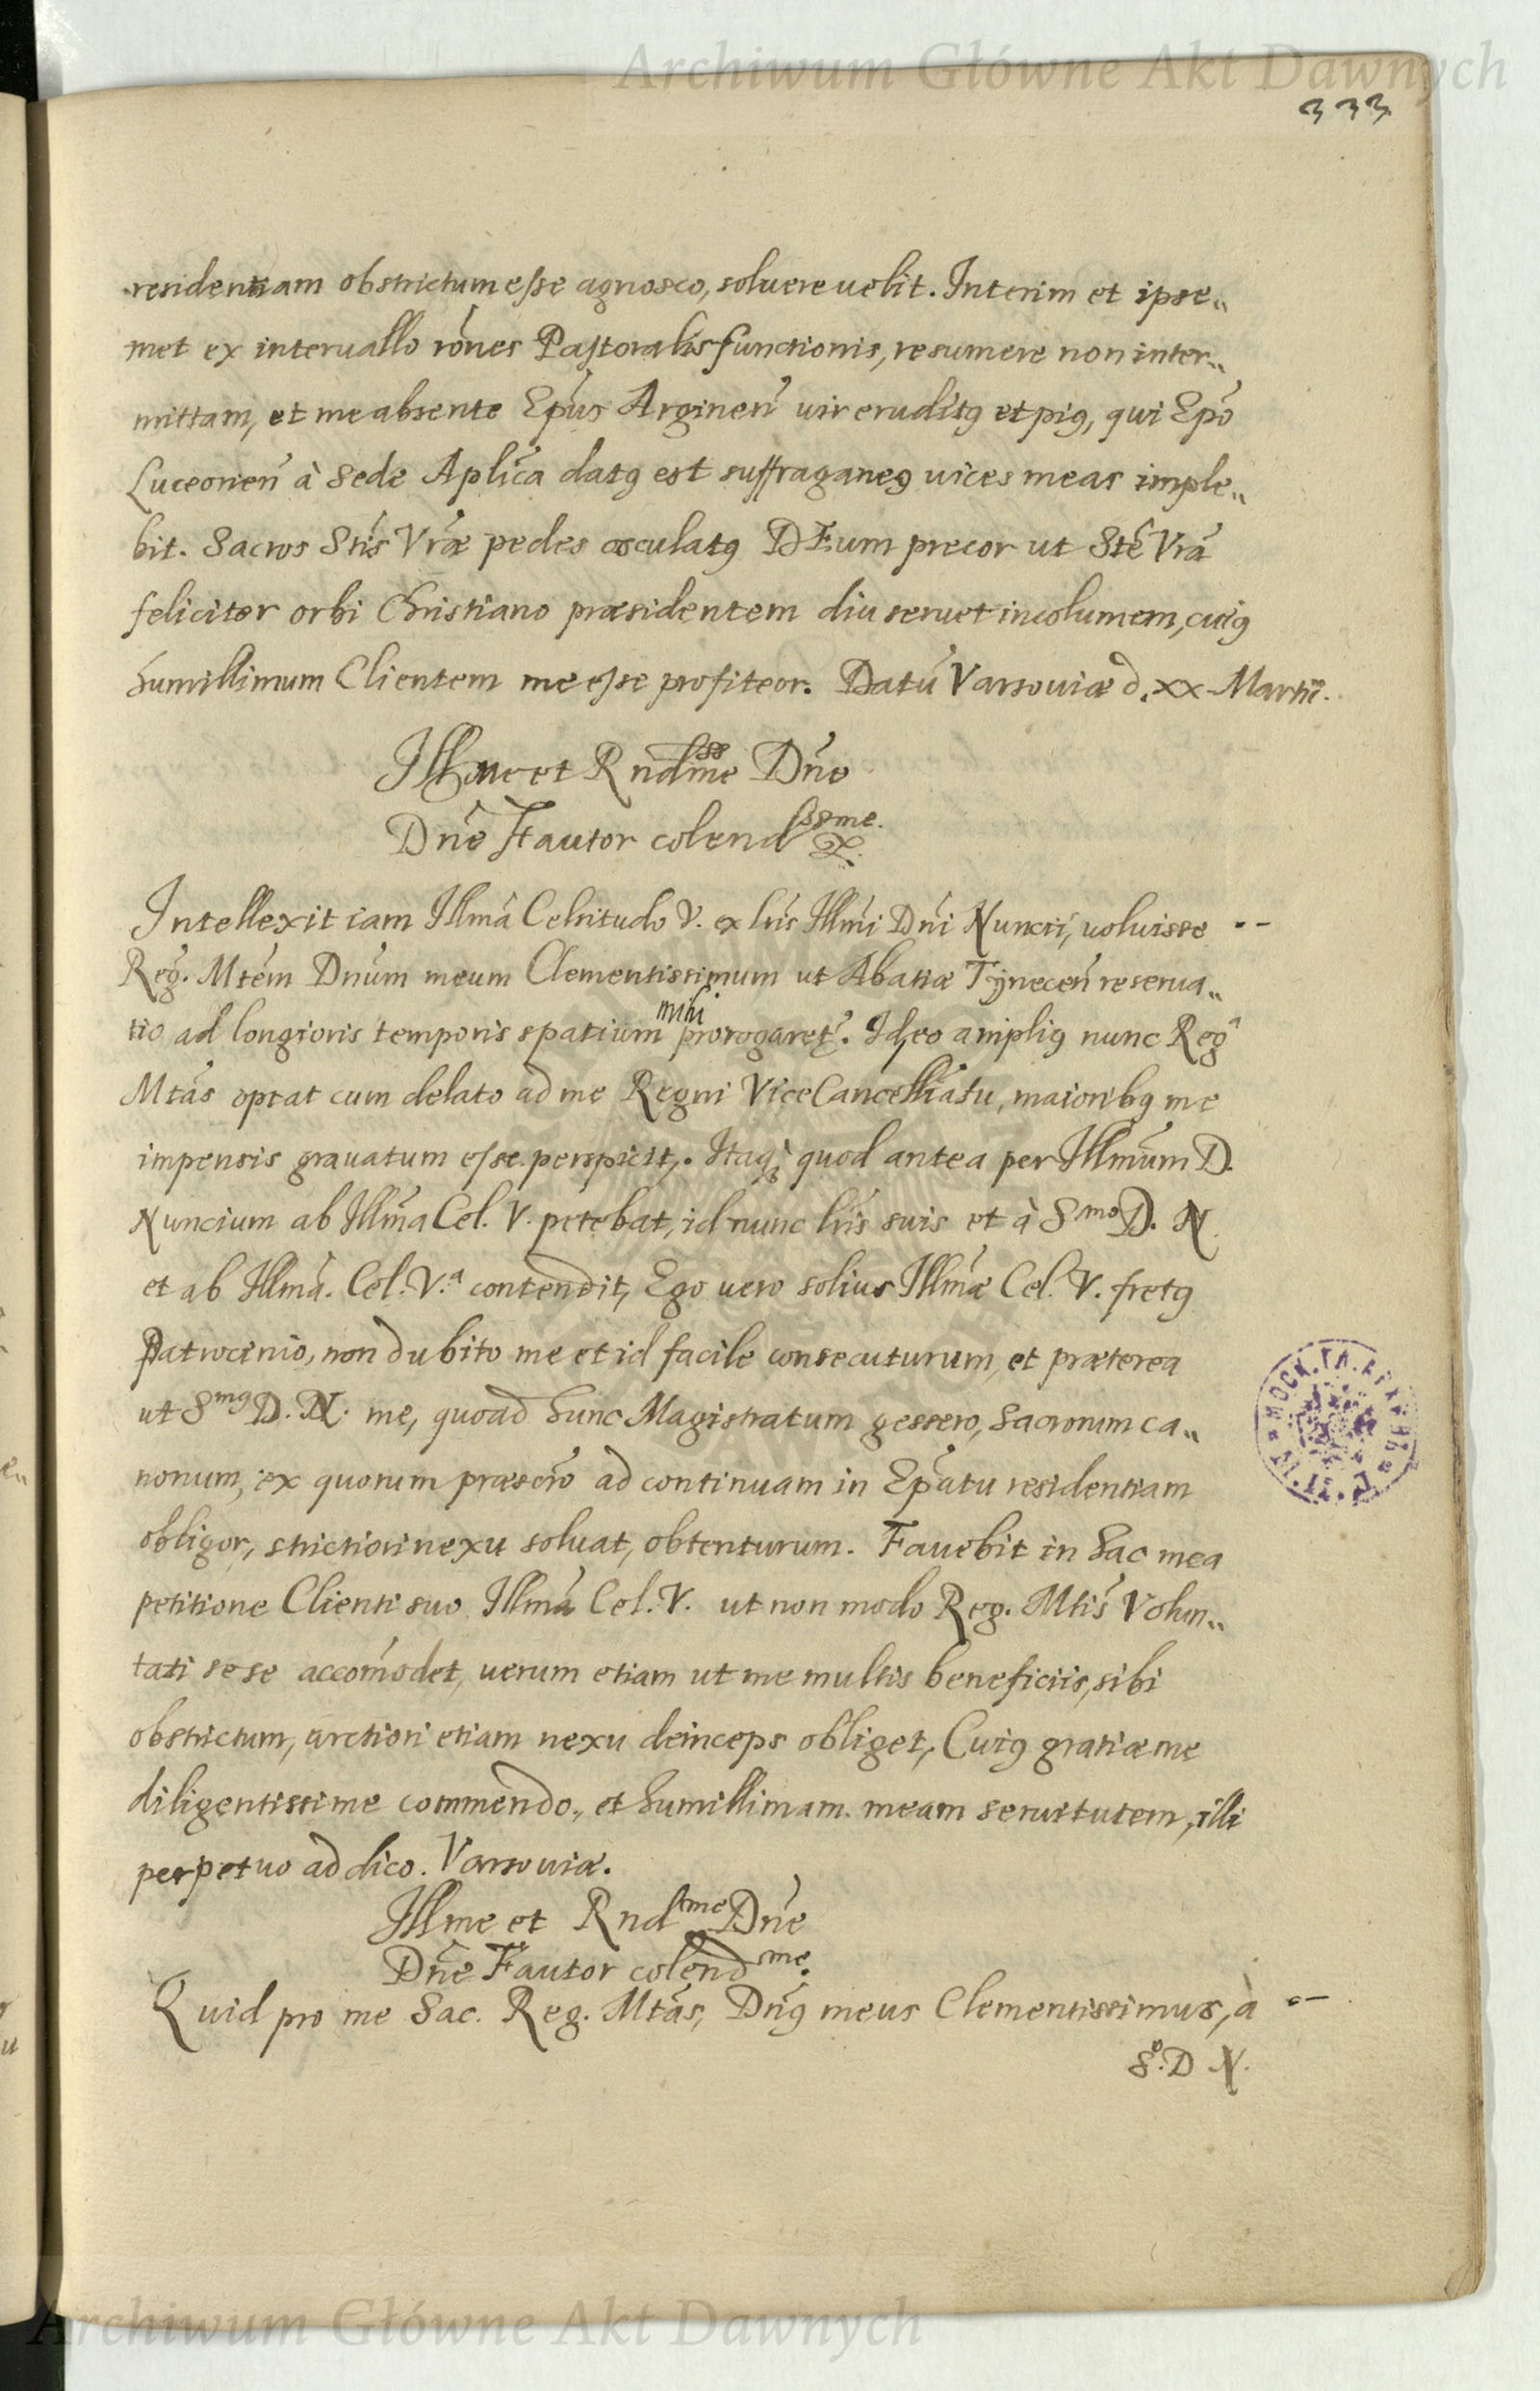 Archiwum Główne Akt Dawnych
333
residentiam obstrictum esse agnosco, soluere uelit. Interim et ipse„
met ex interuallo rões Pastoralis functionis, resumere non inter„
mittam, et me absente Epũs Arginen̄ uir eruditꝰ et piꝰ, qui Epõ
Luceorien̄ à Sede Aplica datꝰ est suffraganeꝰ uices meas imple„
bit. Sacros Stis Vræ pedes osculatꝰ DEum precor ut Stē Vrā
feliciter orbi Christiano præsidentem diu seruet incolumem, cuiꝰ
humillimum Clientem me esse profiteor. Datũ Varsouiæ d. xx Martii.
Illme et Rndissme Dñe
Dñe Fautor colendissme.
Intellexit iam Illmā Celsitudo V. ex lr̃is Illmi Dñi Nuncii, uoluisse
Reg. Mtem Dnũm meum Clementissimum ut Abatiæ Tÿnecen̄ reserua„
tio ad longioris temporis spatium mihi prorogaretʳ. Id eo ampliꝰ nunc Regᵃ
Mtās optat cum delato ad me Regni ViceCancellariatu, maioribꝰ me
impensis grauatum esse perspicit. Itaqꝫ quod antea per Illmũm D.
Nuncium ab Illmā Cel. V. petebat, id nunc lr̃is suis et à Sᵐᵒ D. N.
et ab Illmā. Cel. V.ᵃ contendit, Ego uero solius Illmæ Cel. V. fretꝰ
Patrocinio, non dubito me et id facile consecuturum, et præterea
ut Sᵐꝰ D. N. me, quoad hunc Magistratum gessero, Sacrorum ca„
nonum, ex quorum præscrõ ad continuam in Epātu residentiam
obligor, strictiori nexu soluat, obtenturum. Fauebit in hac mea
petitione Clienti suo Illmā Cel. V. ut non modo Reg. Mtis Volun„
tati sese accomõdet, uerum etiam ut me multis beneficiis, sibi
obstrictum, arctiori etiam nexu deinceps obliget, Cuiꝰ gratiæ me
diligentissime commendo, et humillimam meam seruitutem, illi
perpetuo addico. Varsouiæ.
Illme et Rndᵐᵉ Dñe
Dñe Fautor colendˢᵐᵉ.
Quid pro me Sac. Reg. Mtās, Dñꝰ meus Clementissimus, à
Sº. D N.
Archiwum Główne Akt Dawnych